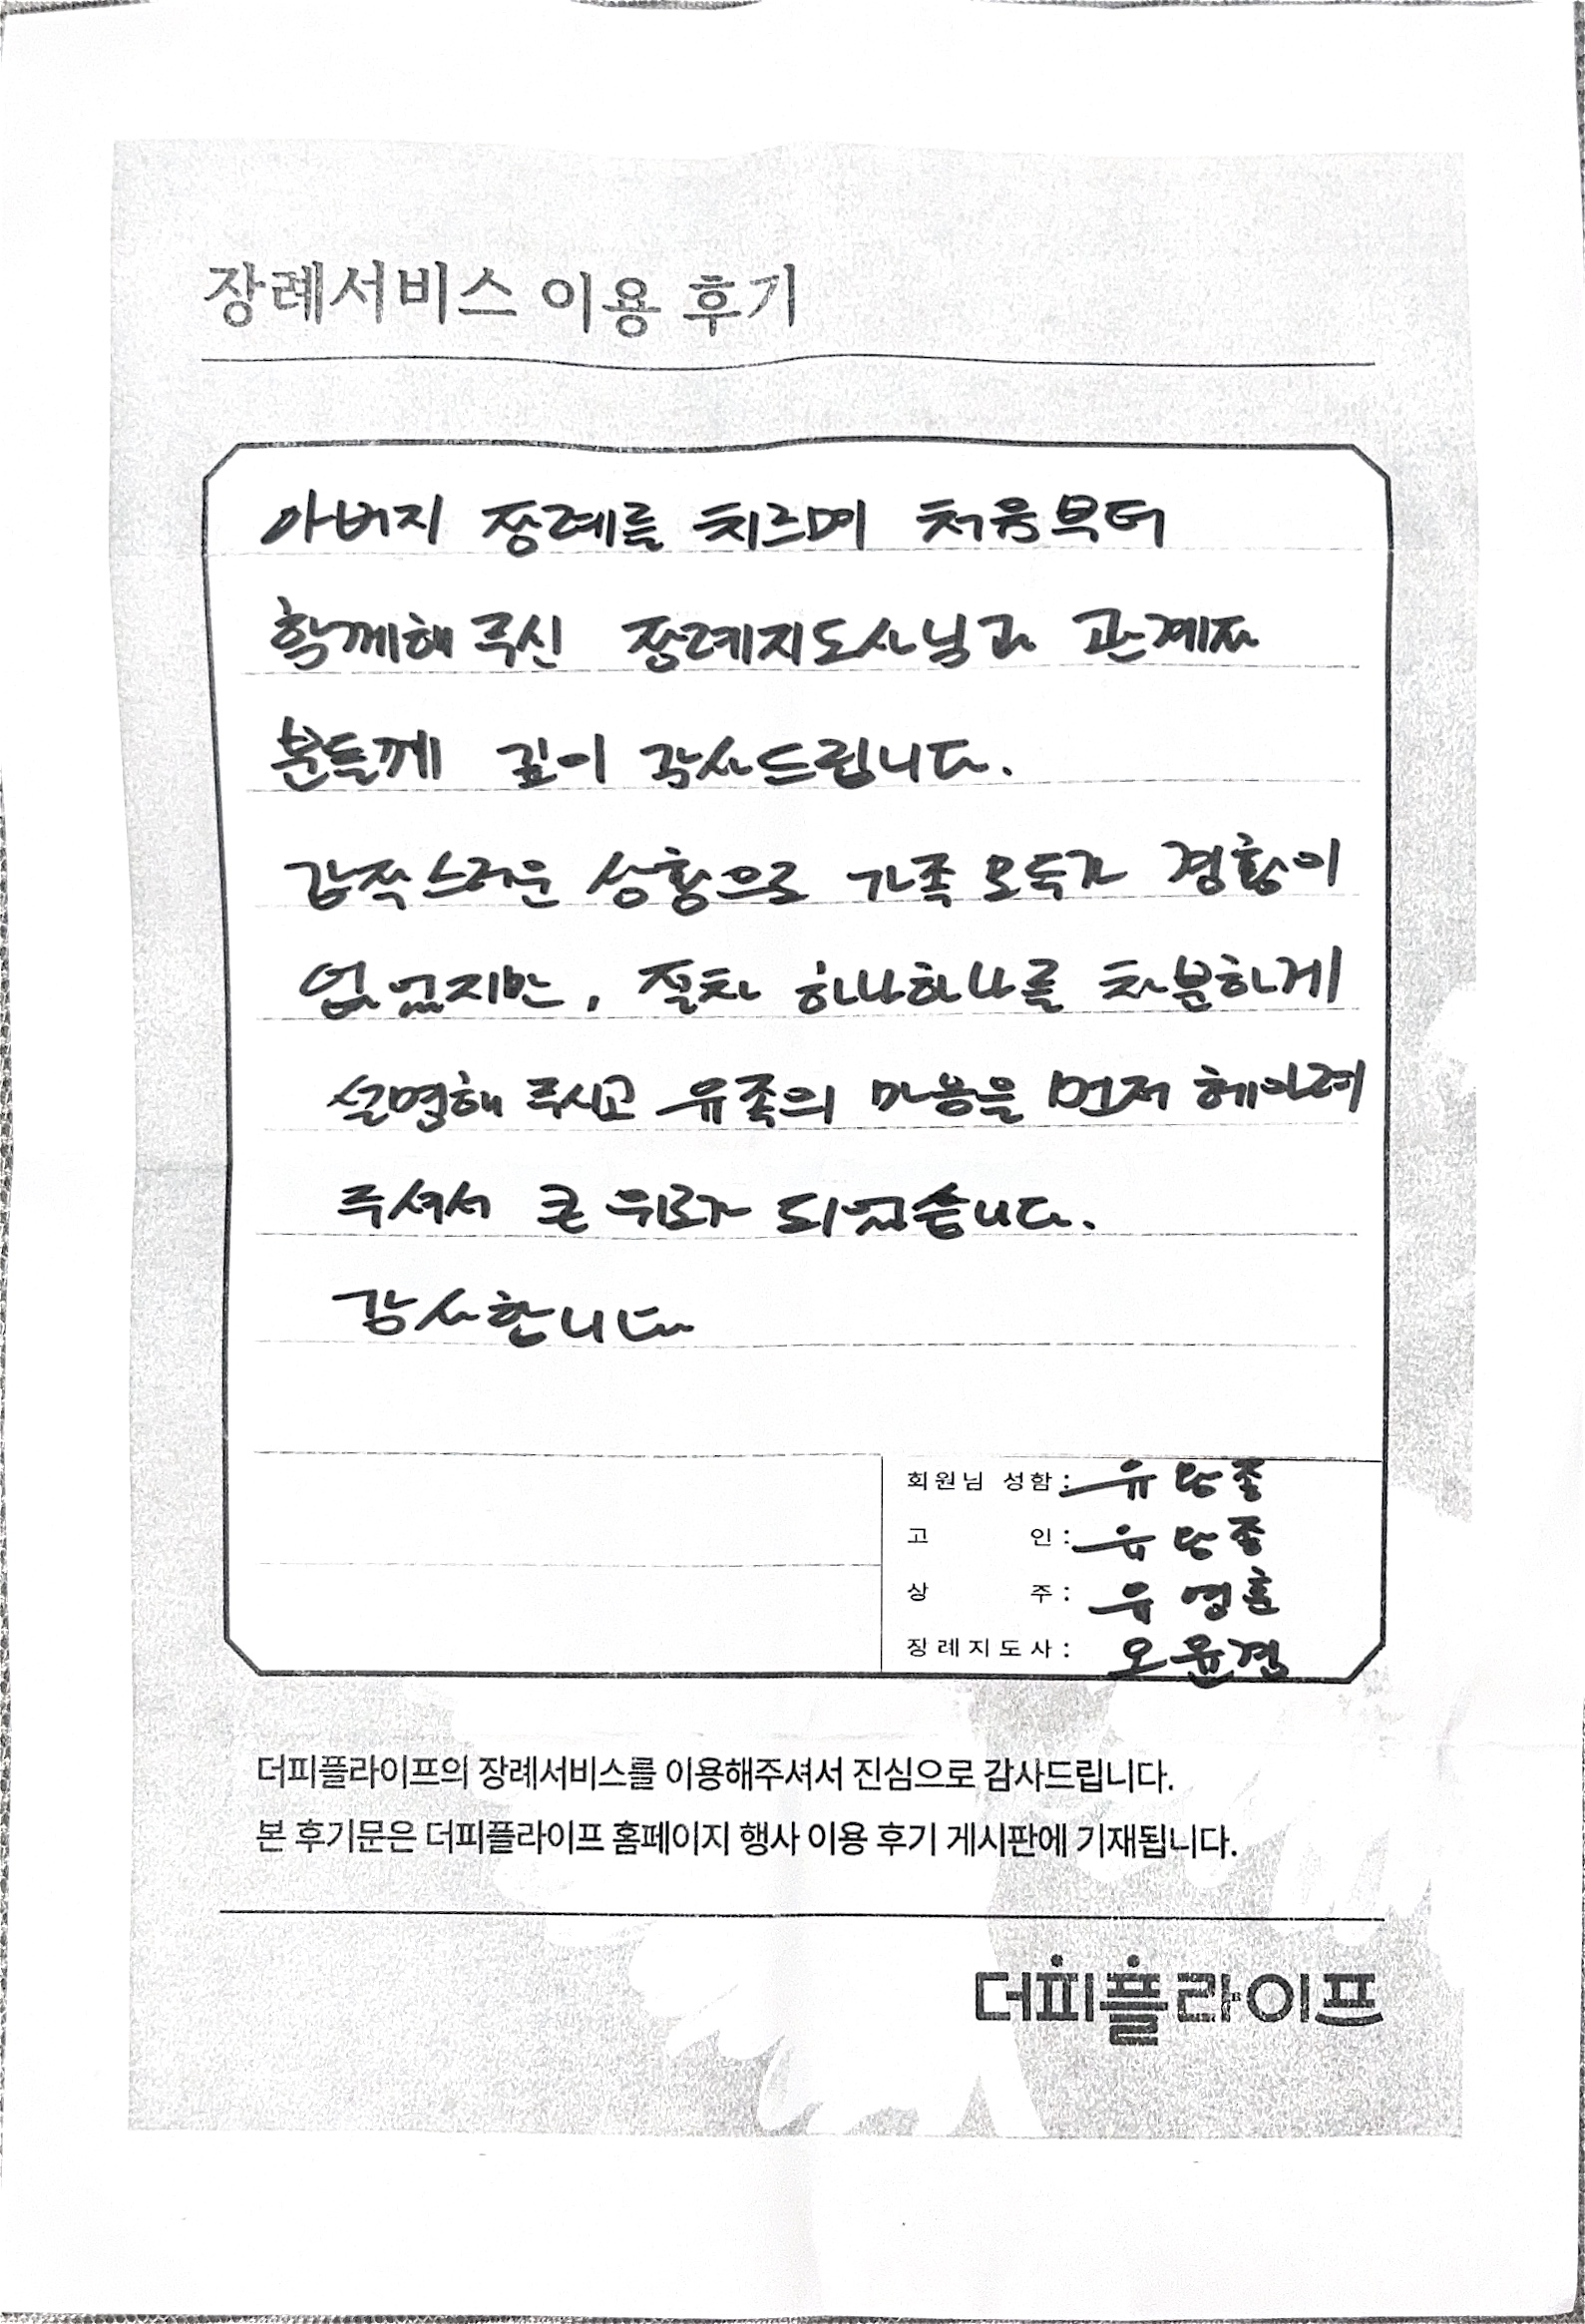 장례서비스 이용 후기
아버지 장례를 치르며 처음부터
함께해 주신 장례지도사님과 관계자
분들께 깊이 감사드립니다.
갑작스러운 상황으로 가족 모두가 경황이
없었지만, 절차 하나하나를 차분하게
설명해 주시고 유족의 마음을 먼저 헤아려
주셔서 큰 위로가 되었습니다.
감사합니다
회원님 성함: 유만종
고 인: 유만종
상 주: 유영훈
장례지도사: 오윤경
더피플라이프의 장례서비스를 이용해주셔서 진심으로 감사드립니다.
본 후기문은 더피플라이프 홈페이지 행사 이용 후기 게시판에 기재됩니다.
더피플라이프